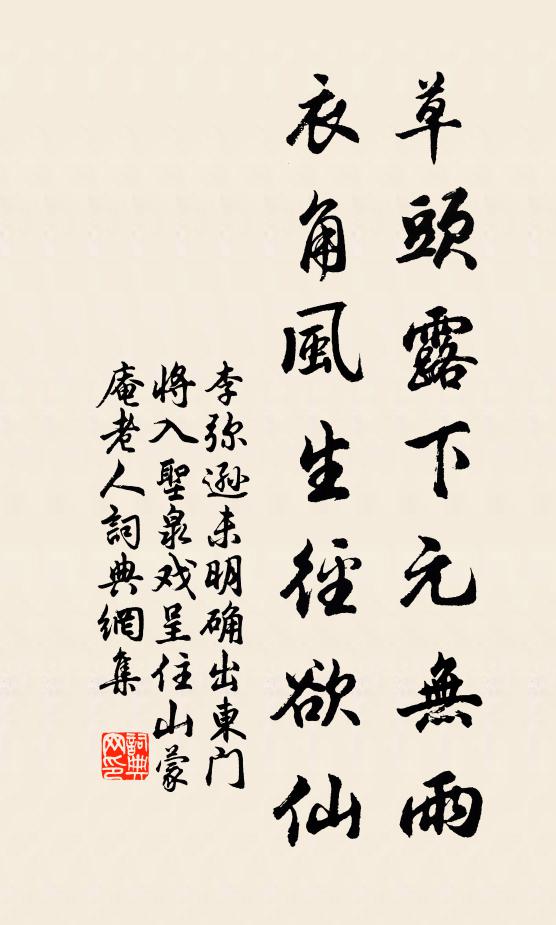 草頭露下元無雨
衣角風生徑欲仙
李弥遜未明确出東门
將入聖泉戏呈住山蒙
庵老人詞典網集
詞典网印